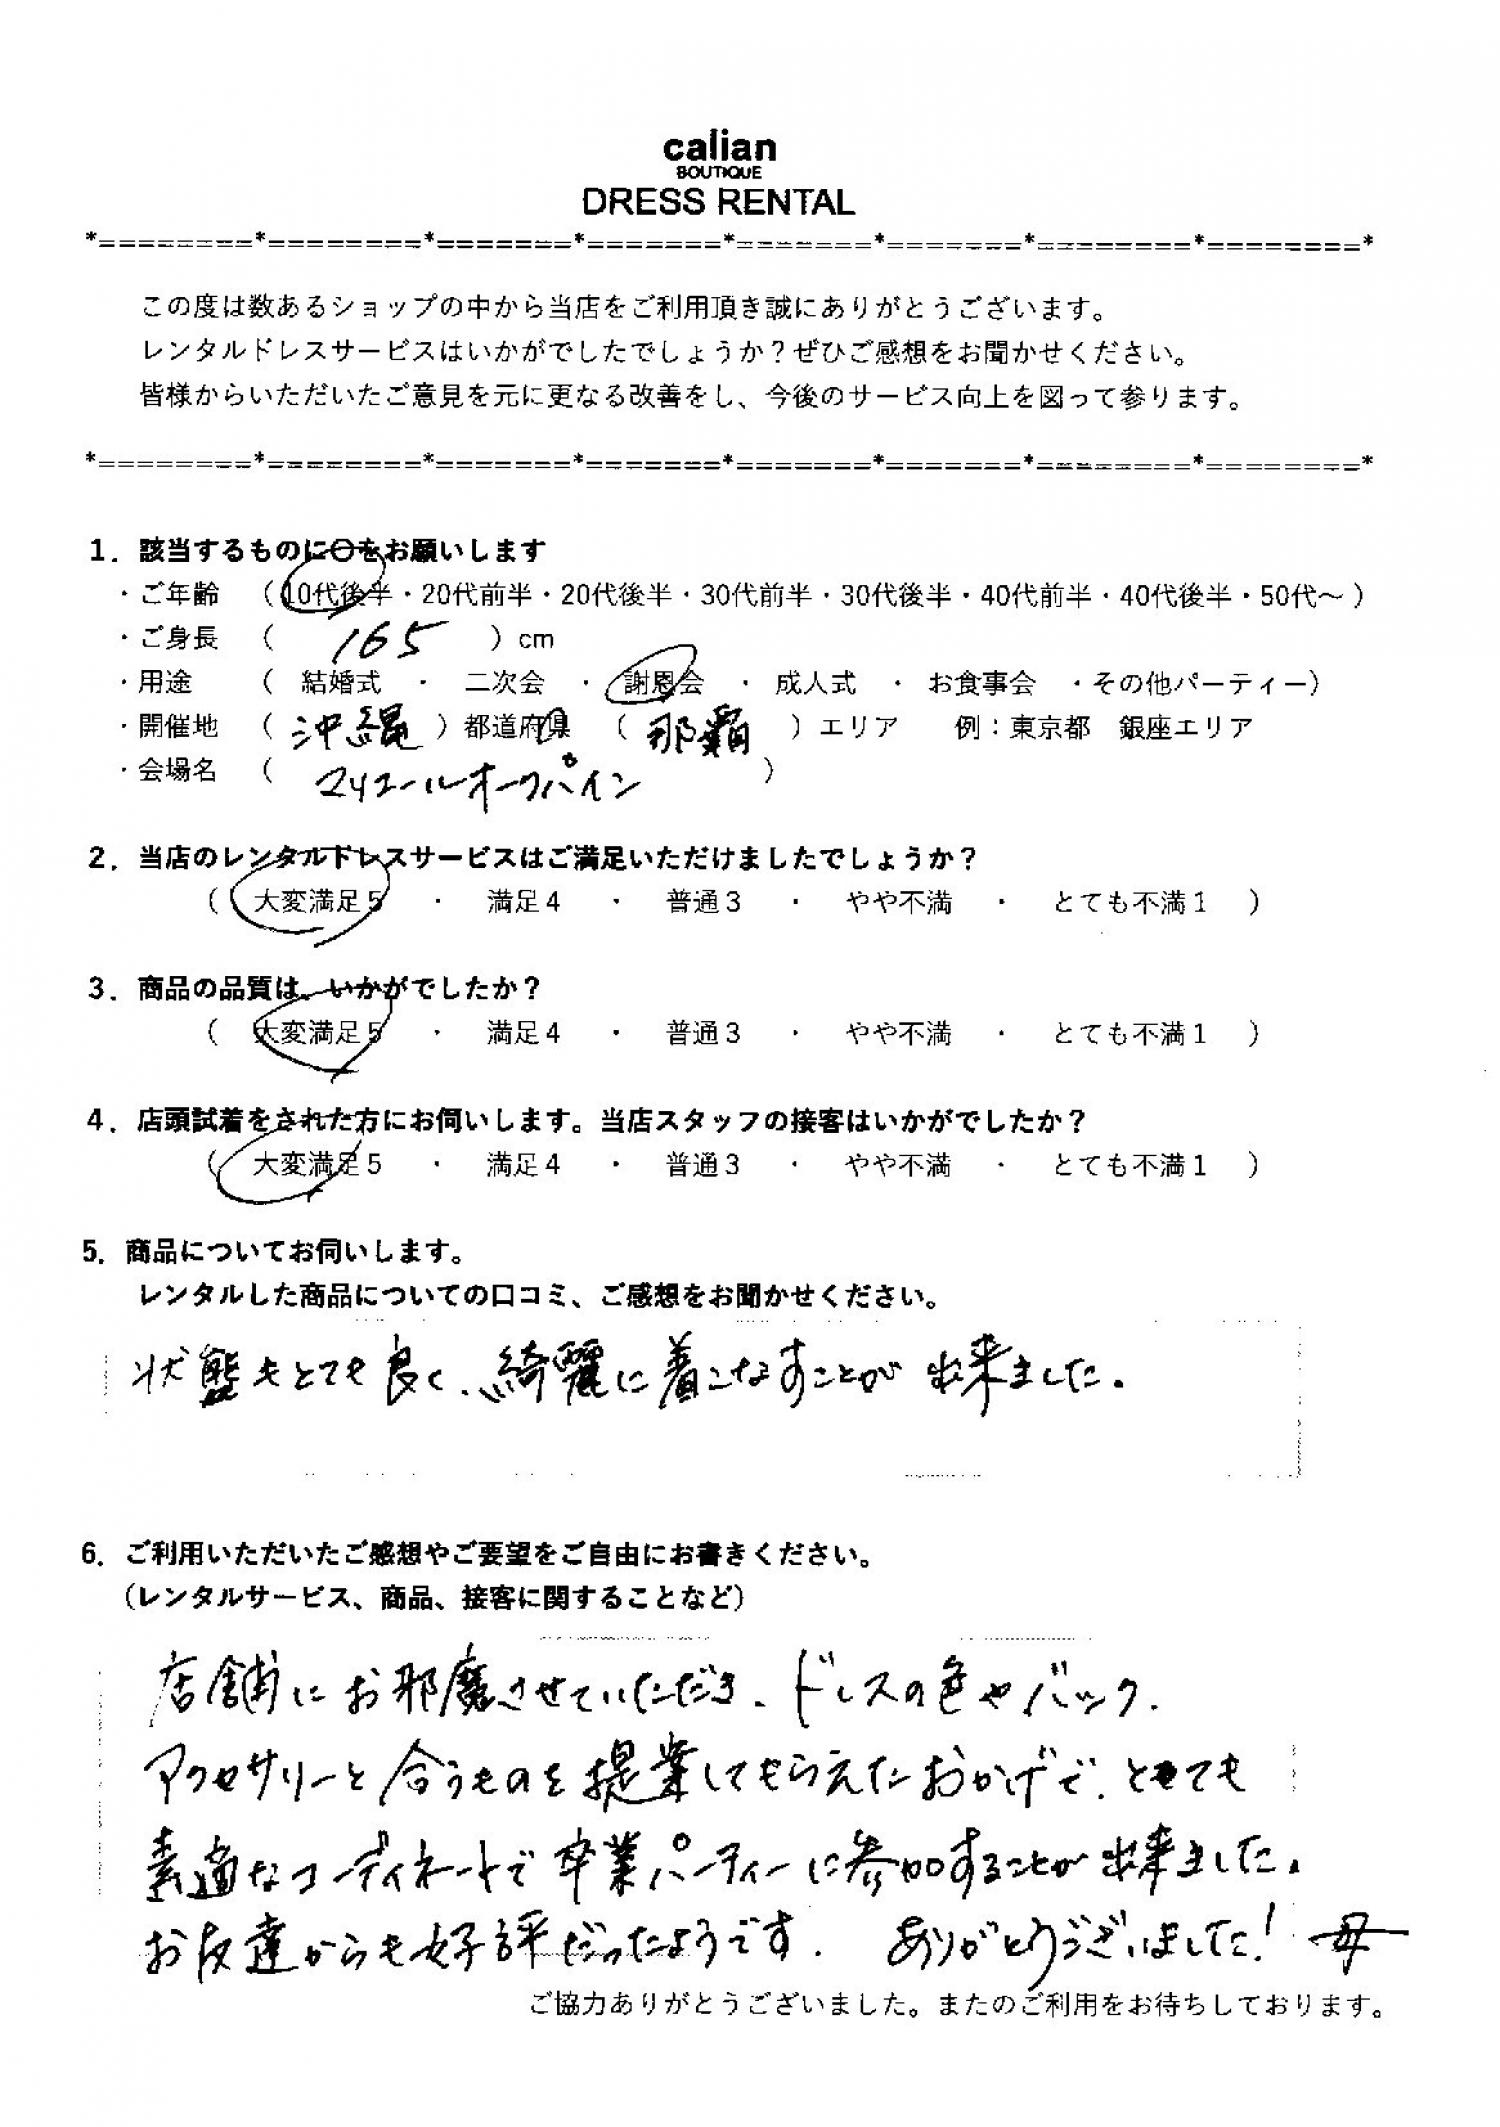 calian
BOUTIQUE
DRESS RENTAL
*========*========*=======*=======*=======*=======*========*========*
この度は数あるショップの中から当店をご利用頂き誠にありがとうございます。
レンタルドレスサービスはいかがでしたでしょうか？ぜひご感想をお聞かせください。
皆様からいただいたご意見を元に更なる改善をし、今後のサービス向上を図って参ります。
*========*========*=======*=======*=======*=======*========*========*
1．該当するものに〇をお願いします
・ご年齢 （ 10代後半・20代前半・20代後半・30代前半・30代後半・40代前半・40代後半・50代～ ）
・ご身長 （ 165 ）cm
・用途 （ 結婚式 ・ 二次会 ・ 謝恩会 ・ 成人式 ・ お食事会 ・その他パーティー）
・開催地 （ 沖縄 ）都道府県 （ 那覇 ）エリア 例：東京都 銀座エリア
・会場名 （ マリエールオークパイン ）
2．当店のレンタルドレスサービスはご満足いただけましたでしょうか？
（ 大変満足５ ・ 満足４ ・ 普通３ ・ やや不満 ・ とても不満１ ）
3．商品の品質は、いかがでしたか？
（ 大変満足５ ・ 満足４ ・ 普通３ ・ やや不満 ・ とても不満１ ）
4．店頭試着をされた方にお伺いします。当店スタッフの接客はいかがでしたか？
（ 大変満足５ ・ 満足４ ・ 普通３ ・ やや不満 ・ とても不満１ ）
5．商品についてお伺いします。
レンタルした商品についての口コミ、ご感想をお聞かせください。
状態もとても良く、綺麗に着こなすことが出来ました。
6．ご利用いただいたご感想やご要望をご自由にお書きください。
（レンタルサービス、商品、接客に関することなど）
店舗にお邪魔させていただき、ドレスの色やバック、
アクセサリーと合うものを提案してもらえたおかげで、とても
素適なコーディネートで卒業パーティーに参加することが出来ました。
お友達からも好評だったようです。 ありがとうございました！ 母
ご協力ありがとうございました。またのご利用をお待ちしております。